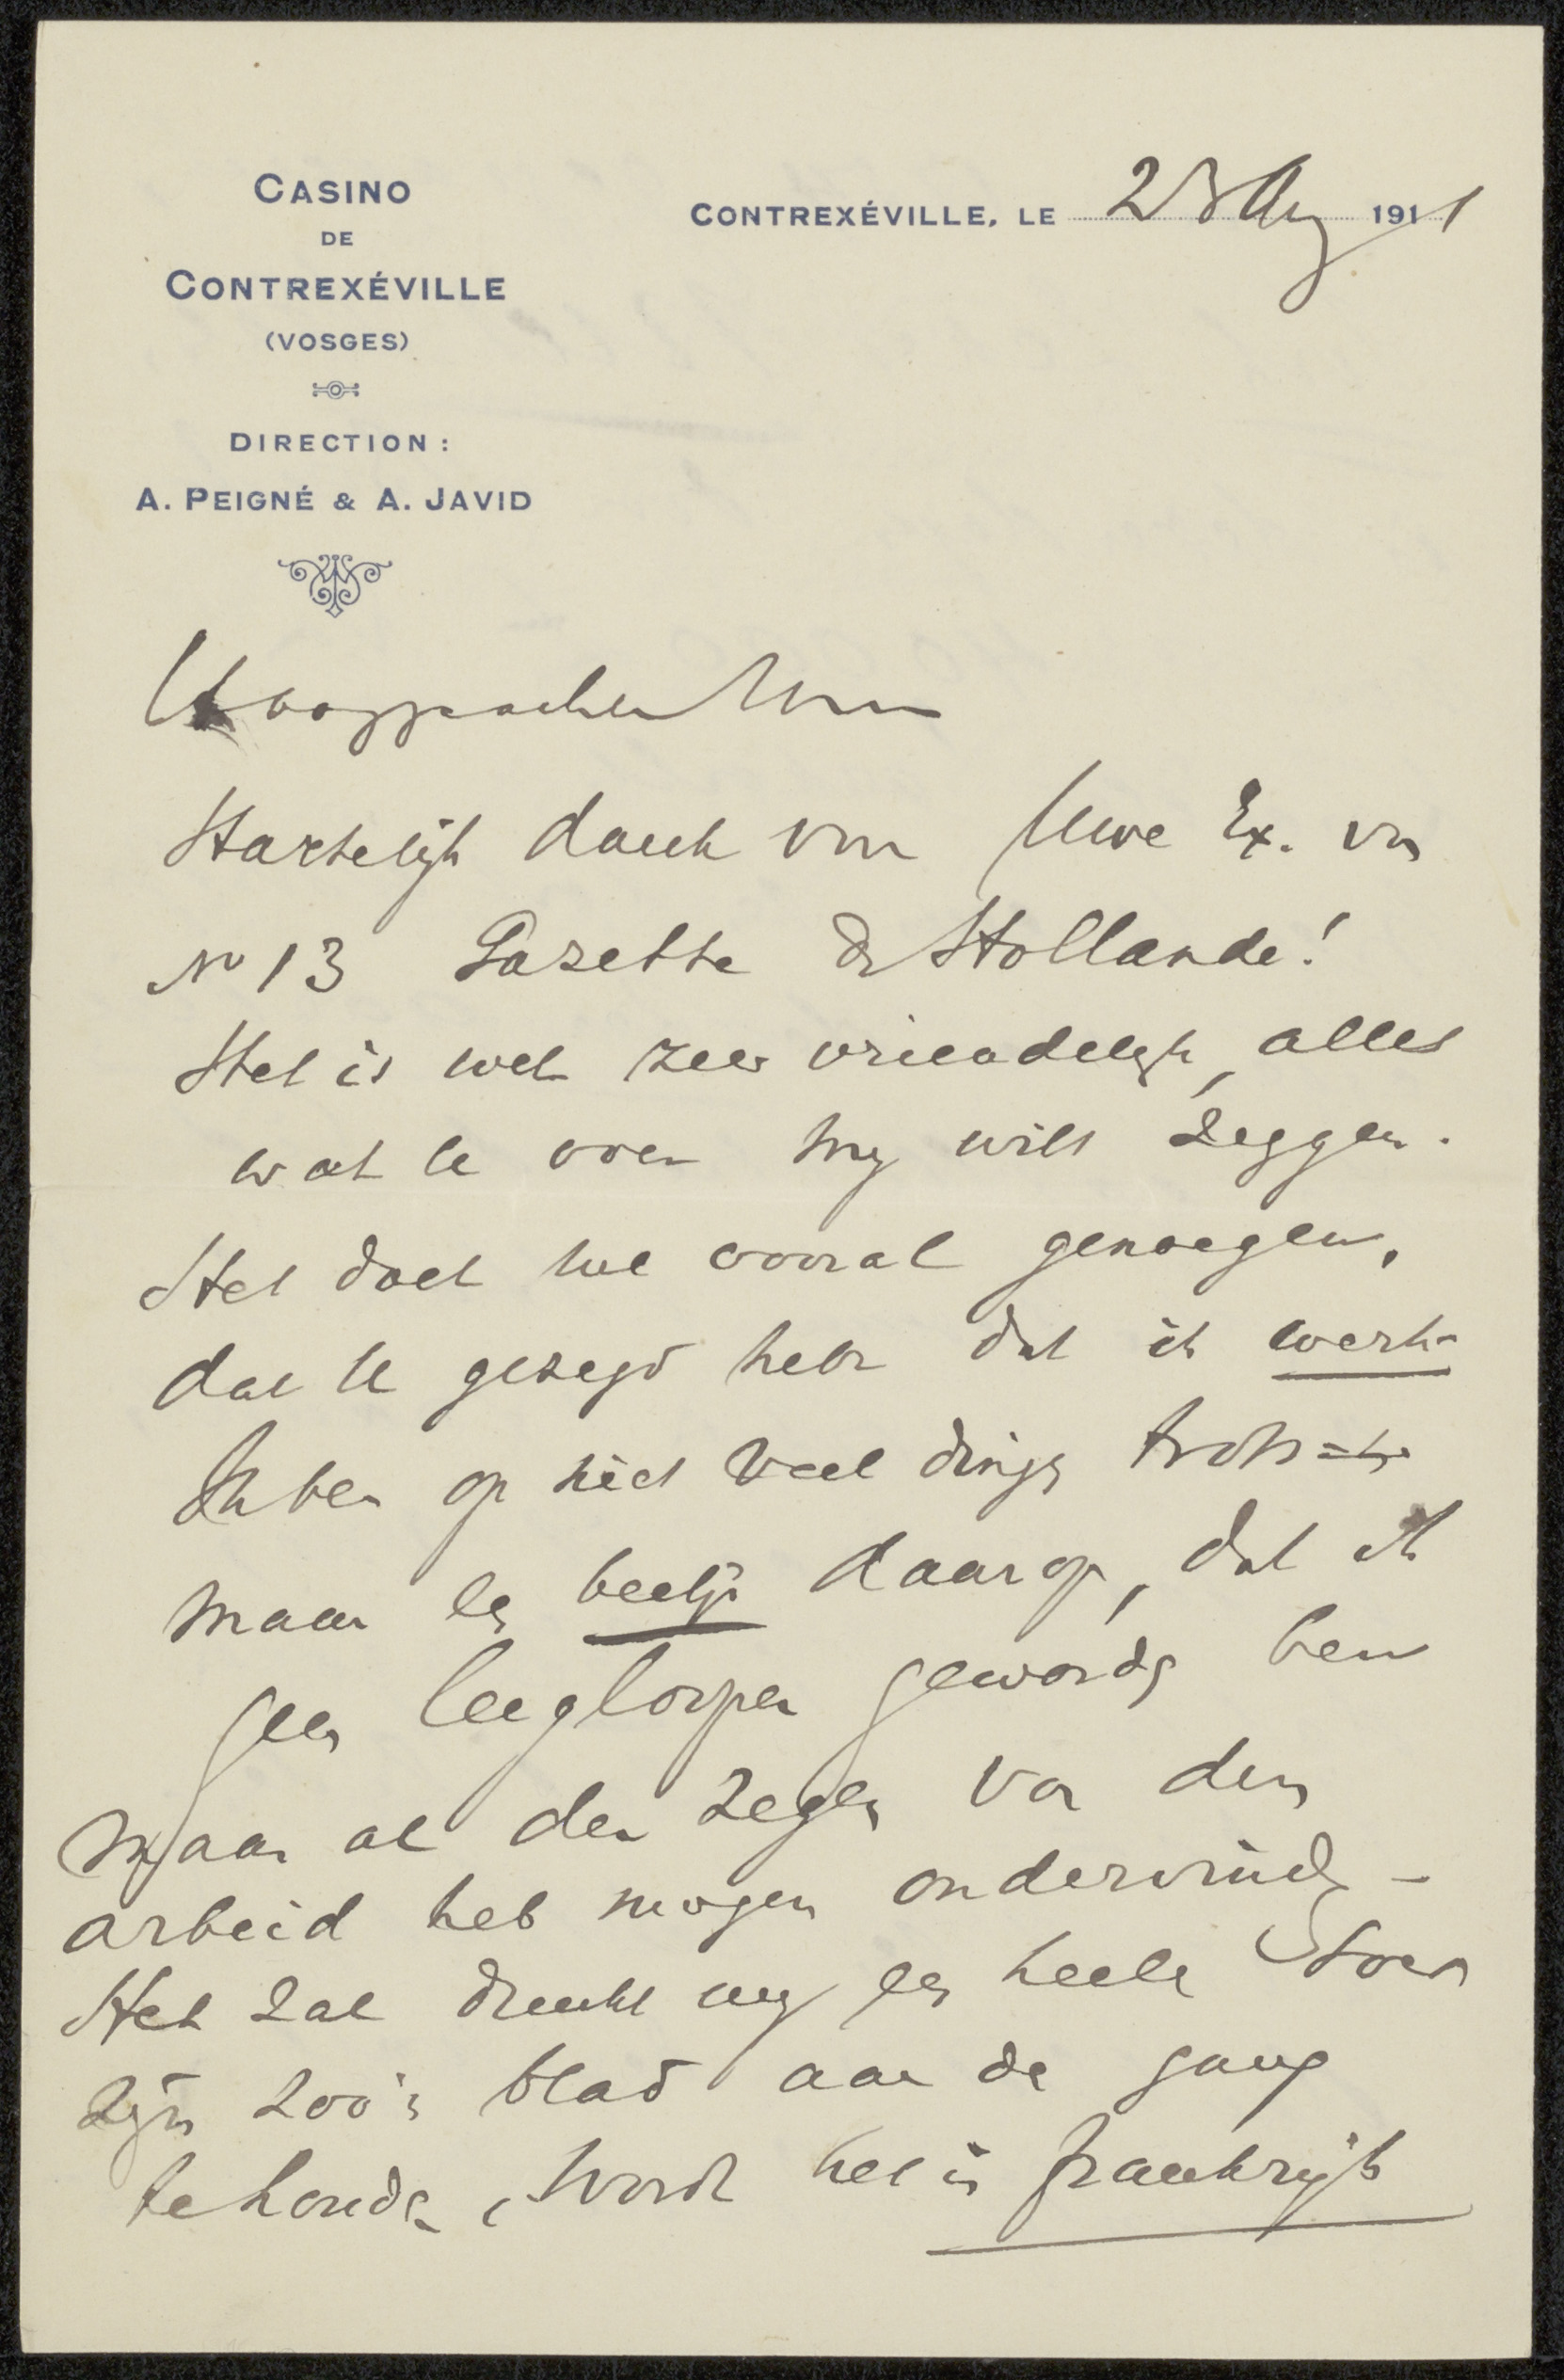 CASINO
DE
CONTREXÉVILLE
(VOSGES)
DIRECTION :
A. PEIGNÉ & A. JAVID
CONTREXÉVILLE, LE 28 Aug 1911
Hartelijk dank voor Uwe Ex. van
No 13 Gazette de Hollande!
Het is wel zeer vriendelijk, alles
wat U over my wilt zeggen.
Het doet me vooral genoegen,
dat U gezegd hebt dat ik werk-
Ik ben op niet veel dingen trotsch
maar een beetje daarop, dat ik
geen leeglooper geworden ben
maar al den zegen van den
arbeid heb mogen ondervinden -
Het zal dunkt my een heele toer
zijn zoo'n blad aan de gang
te houden, wordt het in Frankrijk